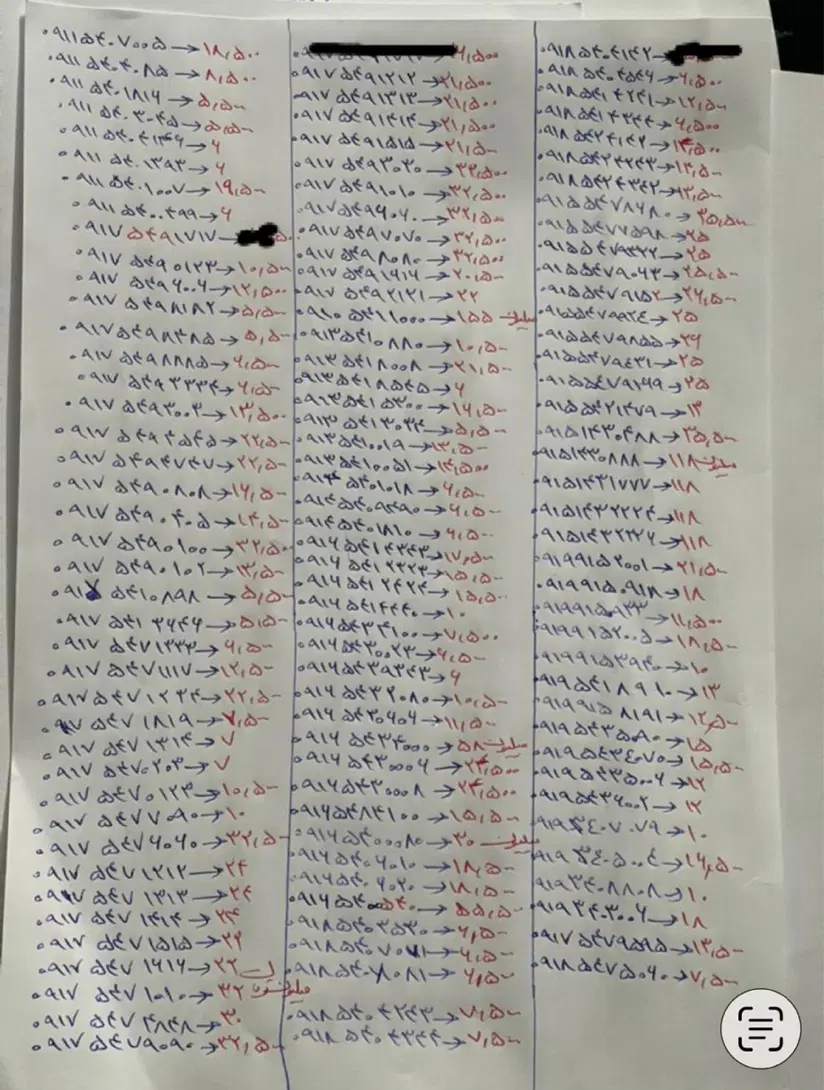 ۰۹۱۱۵۴۰۷۰۰۵ → ۱۸,۵۰۰
۰۹۱۱۵۴۰۴۰۸۵ → ۸,۵۰۰
۰۹۱۱۵۴۰۱۸۱۶ → ۵,۵۰۰
۰۹۱۱۵۴۰۳۰۴۵ → ۵,۵۰۰
۰۹۱۱۵۴۰۱۳۹۳ → ۶
۰۹۱۱۵۴۰۱۰۰۷ → ۱۹,۵۰۰
۰۹۱۱۵۴۰۰۴۹۹ → ۶
۰۹۱۷۵۴۹۱۷۱۷
۰۹۱۷۵۴۹۰۱۲۳ → ۱۰,۵۰۰
۰۹۱۷۵۴۹۶۰۰۶ → ۱۲,۵۰۰
۰۹۱۷۵۴۹۸۱۸۲ → ۵,۵۰۰
۰۹۱۷۵۴۹۸۴۸۵ → ۵,۵۰۰
۰۹۱۷۵۴۹۸۸۸۵ → ۶,۵۰۰
۰۹۱۷۵۴۹۳۰۰۳ → ۱۳,۵۰۰
۰۹۱۷۵۴۹۴۵۴۵ → ۲۲,۵۰۰
۰۹۱۷۵۴۹۴۷۴۷ → ۲۲,۵۰۰
۰۹۱۷۵۴۹۰۸۰۸ → ۱۶,۵۰۰
۰۹۱۷۵۴۹۰۴۰۵ → ۱۴,۵۰۰
۰۹۱۷۵۴۹۰۱۰۰ → ۳۲,۵۰۰
۰۹۱۷۵۴۹۰۱۰۲ → ۱۳,۵۰۰
۰۹۱۷۵۴۷۱۳۳۳ → ۶,۵۰۰
۰۹۱۷۵۴۷۱۱۱۷ → ۱۲,۵۰۰
۰۹۱۷۵۴۷۱۲۳۴ → ۲۲,۵۰۰
۰۹۱۷۵۴۷۱۸۱۹ → ۷,۵۰۰
۰۹۱۷۵۴۷۱۳۱۴ → ۷
۰۹۱۷۵۴۷۰۲۰۳ → ۷
۰۹۱۷۵۴۷۰۱۲۳ → ۱۰,۵۰۰
۰۹۱۷۵۴۷۷۰۹۰ → ۱۰
۰۹۱۷۵۴۷۶۰۶۰ → ۳۲,۵۰۰
۰۹۱۷۵۴۷۱۲۱۲ → ۲۴
۰۹۱۷۵۴۷۱۳۱۳ → ۲۴
۰۹۱۷۵۴۷۱۴۱۴ → ۲۴
۰۹۱۷۵۴۷۱۵۱۵ → ۲۲
۰۹۱۷۵۴۷۱۶۱۶ → ۲۲
۰۹۱۷۵۴۷۱۰۱۰ → ۳۲
۰۹۱۷۵۴۷۴۸۴۸ → ۳۰
۰۹۱۷۵۴۷۹۰۹۰ → ۳۲,۵۰۰
۶,۵۰۰
۰۹۱۷۵۴۹۱۲۱۲ → ۲۱,۵۰۰
۰۹۱۷۵۴۹۱۳۱۳ → ۲۱,۵۰۰
۰۹۱۷۵۴۹۱۴۱۴ → ۲۱,۵۰۰
۰۹۱۷۵۴۹۱۵۱۵ → ۲۱,۵۰۰
۰۹۱۷۵۴۹۳۰۳۰ → ۳۲,۵۰۰
۰۹۱۷۵۴۹۱۰۱۰ → ۳۲,۵۰۰
۰۹۱۷۵۴۹۶۰۶۰ → ۳۲,۵۰۰
۰۹۱۷۵۴۹۷۰۷۰ → ۳۲,۵۰۰
۰۹۱۷۵۴۹۸۰۸۰ → ۳۲,۵۰۰
۰۹۱۷۵۴۹۱۶۱۶ → ۲۰,۵۰۰
۰۹۱۷۵۴۹۲۱۲۱ → ۲۲
۰۹۱۰۵۴۱۱۰۰۰ → ۱۵۵ میلیون
۰۹۱۳۵۴۱۰۸۸۰ → ۱۰,۵۰۰
۰۹۱۳۵۴۱۸۰۰۸ → ۲۱,۵۰۰
۰۹۱۳۵۴۱۸۵۴۵ → ۶
۰۹۱۳۵۴۱۵۳۰۰ → ۱۶,۵۰۰
۰۹۱۳۵۴۱۳۰۳۴ → ۵,۵۰۰
۰۹۱۳۵۴۱۰۰۱۹ → ۱۳,۵۰۰
۰۹۱۳۵۴۱۰۰۵۱ → ۱۴,۵۰۰
۰۹۱۴۵۴۰۱۰۱۸ → ۶,۵۰۰
۰۹۱۴۵۴۰۱۸۱۰ → ۶,۵۰۰
۰۹۱۶۵۴۳۴۱۰۰ → ۷,۵۰۰
۰۹۱۶۵۴۳۰۰۲۳ → ۶,۵۰۰
۰۹۱۶۵۴۳۲۰۸۰ → ۱۰,۵۰۰
۰۹۱۶۵۴۳۰۶۰۶ → ۱۱,۵۰۰
۰۹۱۶۵۴۳۴۰۰۰ → ۵۸ میلیون
۰۹۱۶۵۴۳۰۰۰۶ → ۲۴,۵۰۰
۰۹۱۶۵۴۳۰۰۰۸ → ۲۴,۵۰۰
۰۹۱۶۵۴۸۴۱۰۰ → ۱۵,۵۰۰
۰۹۱۶۵۴۰۰۰۸۰ → ۳۰ میلیون
۰۹۱۶۵۴۰۶۰۱۰ → ۱۸,۵۰۰
۰۹۱۶۵۴۰۶۰۲۰ → ۱۸,۵۰۰
۰۹۱۶۵۴۰۰۵۴۰ → ۵۵,۵۰۰
۰۹۱۸۵۴۰۳۵۳۰ → ۶,۵۰۰
۰۹۱۸۵۴۰۷۰۷۱ → ۶,۵۰۰
۰۹۱۸۵۴۰۷۰۸۱ → ۶,۵۰۰
۰۹۱۸۵۴۰۴۲۴۳ → ۷,۵۰۰
۰۹۱۸۵۴۰۴۳۴۴ → ۷,۵۰۰
۰۹۱۸۵۴۰۶۱۴۲
۰۹۱۸۵۴۰۴۵۴۶ → ۶,۵۰۰
۰۹۱۸۵۴۱۴۲۴۱ → ۱۲,۵۰۰
۰۹۱۸۵۴۱۴۳۴۴ → ۶,۵۰۰
۰۹۱۸۵۴۲۴۱۴۲ → ۱۴,۵۰۰
۰۹۱۸۵۴۲۴۲۴۳ → ۱۳,۵۰۰
۰۹۱۸۵۴۲۴۳۴۲ → ۱۳,۵۰۰
۰۹۱۵۵۴۷۸۶۸۰ → ۲۵,۵۰۰
۰۹۱۵۵۴۷۷۵۹۸ → ۲۵
۰۹۱۵۵۴۷۹۰۶۳ → ۲۵,۵۰۰
۰۹۱۵۵۴۷۹۱۵۲ → ۲۶,۵۰۰
۰۹۱۵۵۴۷۹۹۲۴ → ۲۵
۰۹۱۵۵۴۷۹۸۵۵ → ۲۶
۰۹۱۵۵۴۷۹۴۳۱ → ۲۵
۰۹۱۵۵۴۷۹۱۶۹ → ۲۵
۰۹۱۵۵۴۲۱۴۷۹ → ۱۳
۰۹۱۵۱۴۳۰۴۸۸ → ۲۵,۵۰۰
۰۹۱۵۱۴۳۰۸۸۸ → ۱۱۸ میلیون
۰۹۱۵۱۴۳۱۷۷۷ → ۱۱۸
۰۹۱۵۱۴۳۲۲۲۴ → ۱۱۸
۰۹۱۵۱۴۳۲۲۲۷ → ۱۱۸
۰۹۱۹۹۱۵۲۰۰۱ → ۲۱,۵۰۰
۰۹۱۹۹۱۵۰۹۱۸ → ۱۸
۰۹۱۹۹۱۵۰۹۳۳ → ۱۱,۵۰۰
۰۹۱۹۹۱۵۲۰۰۵ → ۱۸,۵۰۰
۰۹۱۹۹۱۵۳۹۴۰ → ۱۰
۰۹۱۹۵۴۱۸۹۱۰ → ۱۳
۰۹۱۹۹۱۵۸۱۹۱ → ۱۲,۵۰۰
۰۹۱۹۵۴۳۵۰۹۰ → ۱۵
۰۹۱۹۵۴۳۴۰۷۰ → ۱۵,۵۰۰
۰۹۱۹۵۴۳۵۰۰۶ → ۱۲
۰۹۱۹۵۴۳۶۰۰۲ → ۱۲
۰۹۱۹۳۴۰۷۰۷۹ → ۱۰
۰۹۱۹۳۴۰۵۰۰۴ → ۱۶,۵۰۰
۰۹۱۹۳۴۰۸۸۰۸ → ۱۰
۰۹۱۹۳۴۰۳۰۰۶ → ۱۸
۰۹۱۷۵۴۷۹۵۹۵ → ۱۳,۵۰۰
۰۹۱۸۵۴۷۵۰۶۰ → ۷,۵۰۰